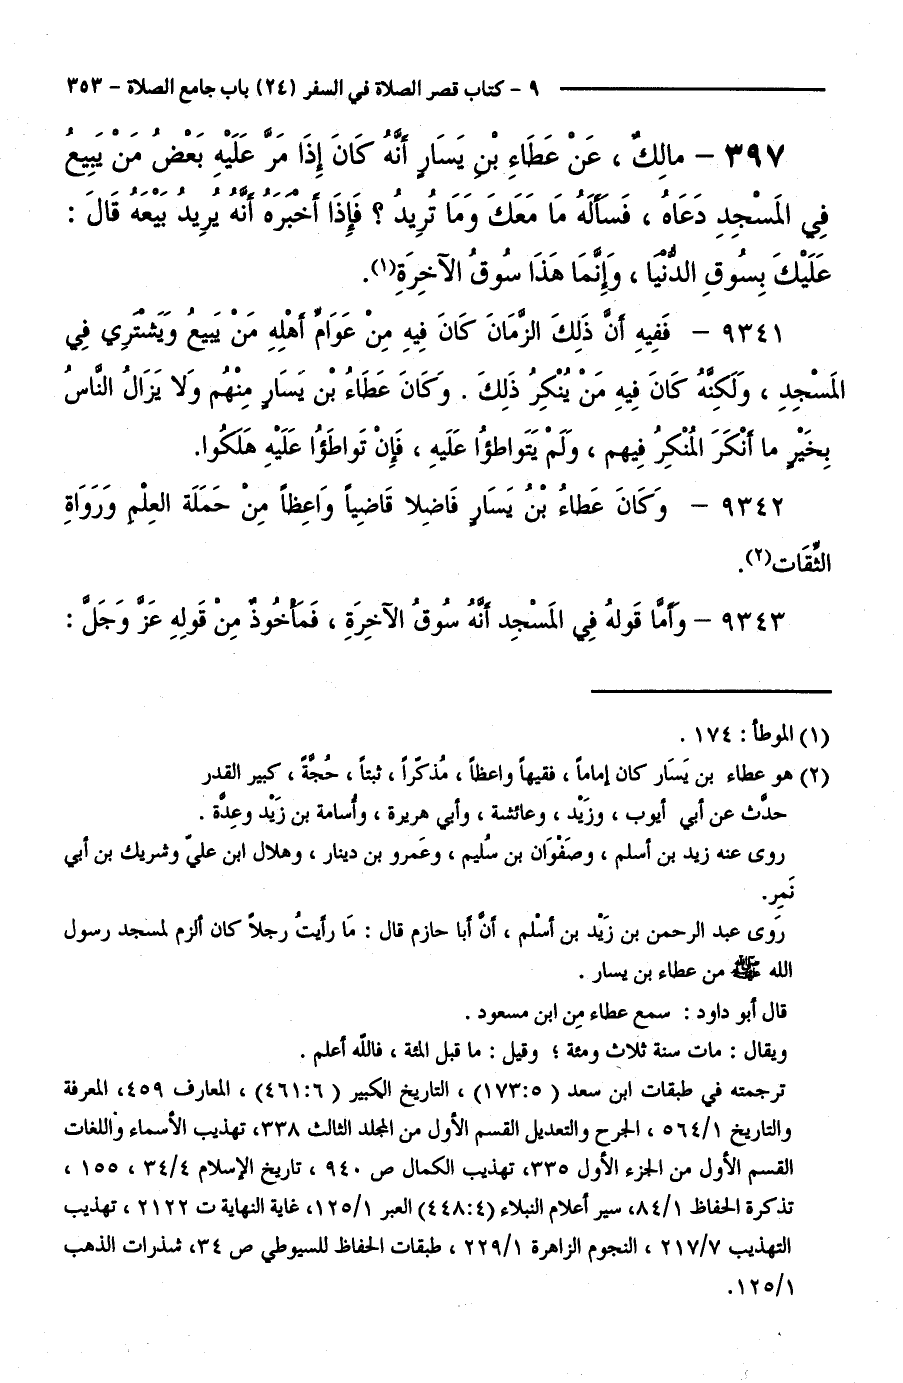 ٩ - كتاب قصر الصلاة في السفر (٢٤) باب جامع الصلاة - ٣٥٣
٣٩٧ - مالِكٌ ، عَنْ عَطَاءِ بْنِ يَسَارٍ أَنَّهُ كَانَ إِذَا مَرَّ عَلَيْهِ بَعْضُ مَنْ يَبِيعُ
فِي المَسْجِدِ دَعَاهُ ، فَسَأَلَهُ مَا مَعَكَ وَمَا تُرِيدُ ؟ فَإِذَا أَخْبَرَهُ أَنَّهُ يُرِيدُ بَيْعَهُ قَالَ :
عَلَيْكَ بِسُوقِ الدُّنْيَا ، وَإِنَّمَا هَذَا سُوقُ الآخِرَةِ(١).
٩٣٤١ - فَفِيهِ أَنَّ ذَلِكَ الزَّمَانَ كَانَ فِيهِ مِنْ عَوَامِّ أَهْلِهِ مَنْ يَبِيعُ وَيَشْتَرِي فِي
المَسْجِدِ ، وَلَكِنَّهُ كَانَ فِيهِ مَنْ يُنْكِرُ ذَلِكَ . وَكَانَ عَطَاءُ بْن يَسَارٍ مِنْهُم وَلَا يَزَالُ النَّاسُ
بِخَيْرٍ ما أَنْكَرَ المُنْكِرُ فِيهم ، وَلَمْ يَتَواطَؤُا عَلَيهِ ، فَإِنْ تَواطَؤُا عَلَيْهِ هَلَكُوا.
٩٣٤٢ - وَكَانَ عَطَاءُ بْنُ يَسَارٍ فَاضِلا قَاضِياً وَاعِظاً مِنْ حَمَلَةِ العِلْمِ وَرَوَاةِ
الثِّقَات(٢).
٩٣٤٣ - وَأَمَّا قَولهُ فِي المَسْجِد أَنَّهُ سُوقُ الآخِرَةِ ، فَمَأْخُوذٌ مِنْ قَولِهِ عَزَّ وَجَلَّ :
(١) الموطأ : ١٧٤ .
(٢) هو عطاء بن يَسَار كان إماماً ، فقيهاً واعظاً ، مُذكّراً ، ثبتاً ، حُجَّةً ، كبير القدر
حدَّث عن أبي أيوب ، وزَيْد ، وعائشة ، وأبي هريرة ، وأُسامة بن زَيْد وعِدَّة .
روى عنه زيد بن أسلم ، وصَفْوَان بن سُليم ، وعَمرو بن دينار ، وهلال ابن عليّ وشريك بن أبي
نَمِر.
رَوى عبد الرحمن بن زَيْد بن أسْلم ، أنَّ أبا حازم قال : مَا رأيتُ رجلاً كان ألزم لمسجد رسول
الله ﷺ من عطاء بن يسار .
قال أبو داود : سمع عطاء مِن ابن مسعود .
ويقال : مات سنة ثلاث ومئة ؛ وقيل : ما قبل المئة ، فاللّه أعلم .
ترجمته في طبقات ابن سعد ( ١٧٣:٥) ، التاريخ الكبير ( ٤٦١:٦) ، المعارف ٤٥٩، المعرفة
والتاريخ ٥٦٤/١ ، الجرح والتعديل القسم الأول من المجلد الثالث ٣٣٨، تهذيب الأسماء واللغات
القسم الأول من الجزء الأول ٣٣٥، تهذيب الكمال ص ٩٤٠ ، تاريخ الإسلام ٣٤/٤ ، ١٥٥ ،
تذكرة الحفاظ ٨٤/١، سير أعلام النبلاء (٤٤٨:٤) العبر ١٢٥/١، غاية النهاية ت ٢١٢٢ ، تهذيب
التهذيب ٢١٧/٧ ، النجوم الزاهرة ٢٢٩/١ ، طبقات الحفاظ للسيوطي ص ٣٤، شذرات الذهب
١٢٥/١.